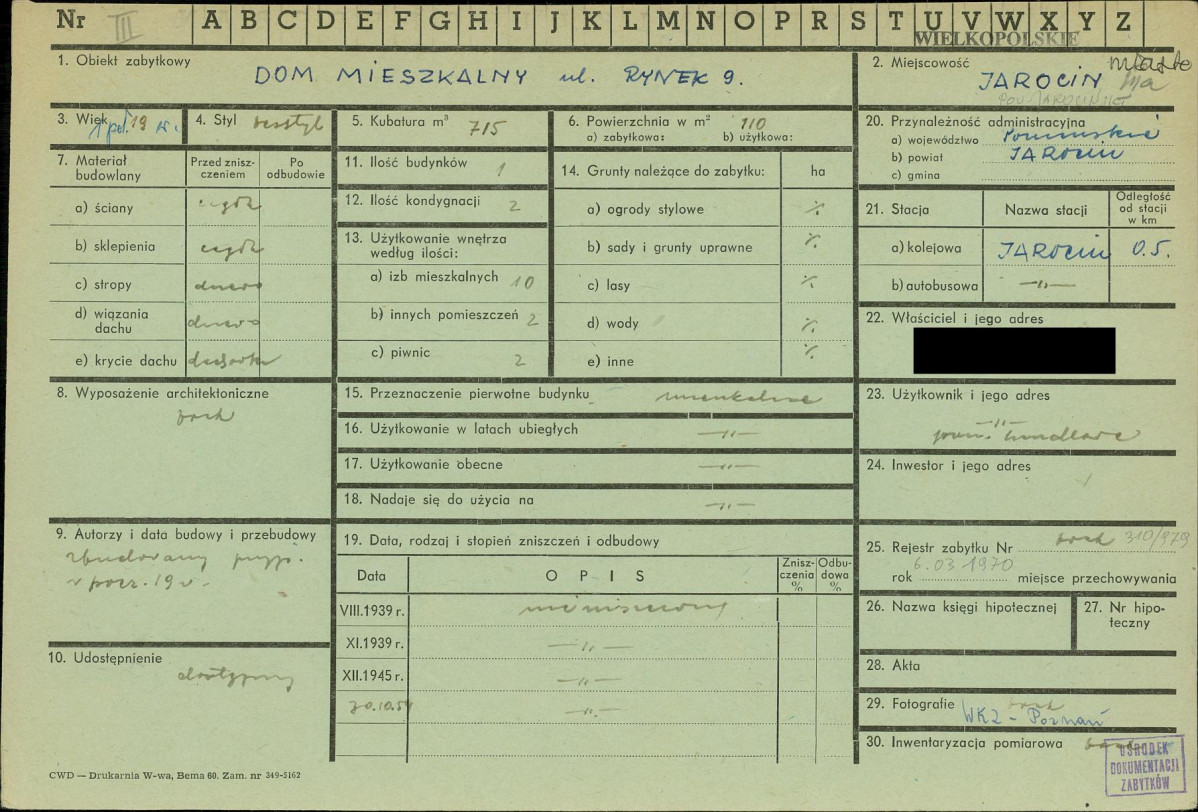 Nr III A B C D E F G H I J K L M N O P R S T U V W X Y Z
WIELKOPOLSKIE
1. Obiekt zabytkowy DOM MIESZKALNY ul. RYNEK 9.
2. Miejscowość miasto
JAROCIN
pow. JAROCIŃSKI
3. Wiek 1 poł. 19 w.
4. Styl bezstyl
5. Kubatura m³ 715
6. Powierzchnia w m² 110
a) zabytkowa: b) użytkowa:
20. Przynależność administracyjna
a) województwo Poznańskie
b) powiat JAROCIN
c) gmina
7. Materiał budowlany
Przed zniszczeniem
Po odbudowie
a) ściany cegła
b) sklepienia cegła
c) stropy drewno
d) wiązania dachu drewno
e) krycie dachu dachówka
11. Ilość budynków 1
12. Ilość kondygnacji 2
13. Użytkowanie wnętrza według ilości:
a) izb mieszkalnych 10
b) innych pomieszczeń 2
c) piwnic 2
14. Grunty należące do zabytku: ha
a) ogrody stylowe ·/.
b) sady i grunty uprawne ·/.
c) lasy ·/.
d) wody ·/.
e) inne ·/.
21. Stacja Nazwa stacji Odległość od stacji w km
a) kolejowa JAROCIN 0.5.
b) autobusowa —„—
22. Właściciel i jego adres
8. Wyposażenie architektoniczne
brak
15. Przeznaczenie pierwotne budynku mieszkalne
16. Użytkowanie w latach ubiegłych —„—
17. Użytkowanie obecne —„—
18. Nadaje się do użycia na —„—
23. Użytkownik i jego adres
—„—
pom. handlowe
24. Inwestor i jego adres
9. Autorzy i data budowy i przebudowy
zbudowany przyp.
w pocz. 19 w.
10. Udostępnienie
dostępny
19. Data, rodzaj i stopień zniszczeń i odbudowy
Data OPIS Zniszczenia % Odbudowa %
VIII.1939 r. niezniszczony
XI.1939 r. —„—
XII.1945 r. —„—
30.10.59 —„—
25. Rejestr zabytku Nr brak 310/979
6.03 1970
rok miejsce przechowywania
26. Nazwa księgi hipotecznej
27. Nr hipoteczny
28. Akta
29. Fotografie brak
WKZ - Poznań
30. Inwentaryzacja pomiarowa brak
OŚRODEK
DOKUMENTACJI
ZABYTKÓW
CWD — Drukarnia W-wa, Bema 60. Zam. nr 349-5162